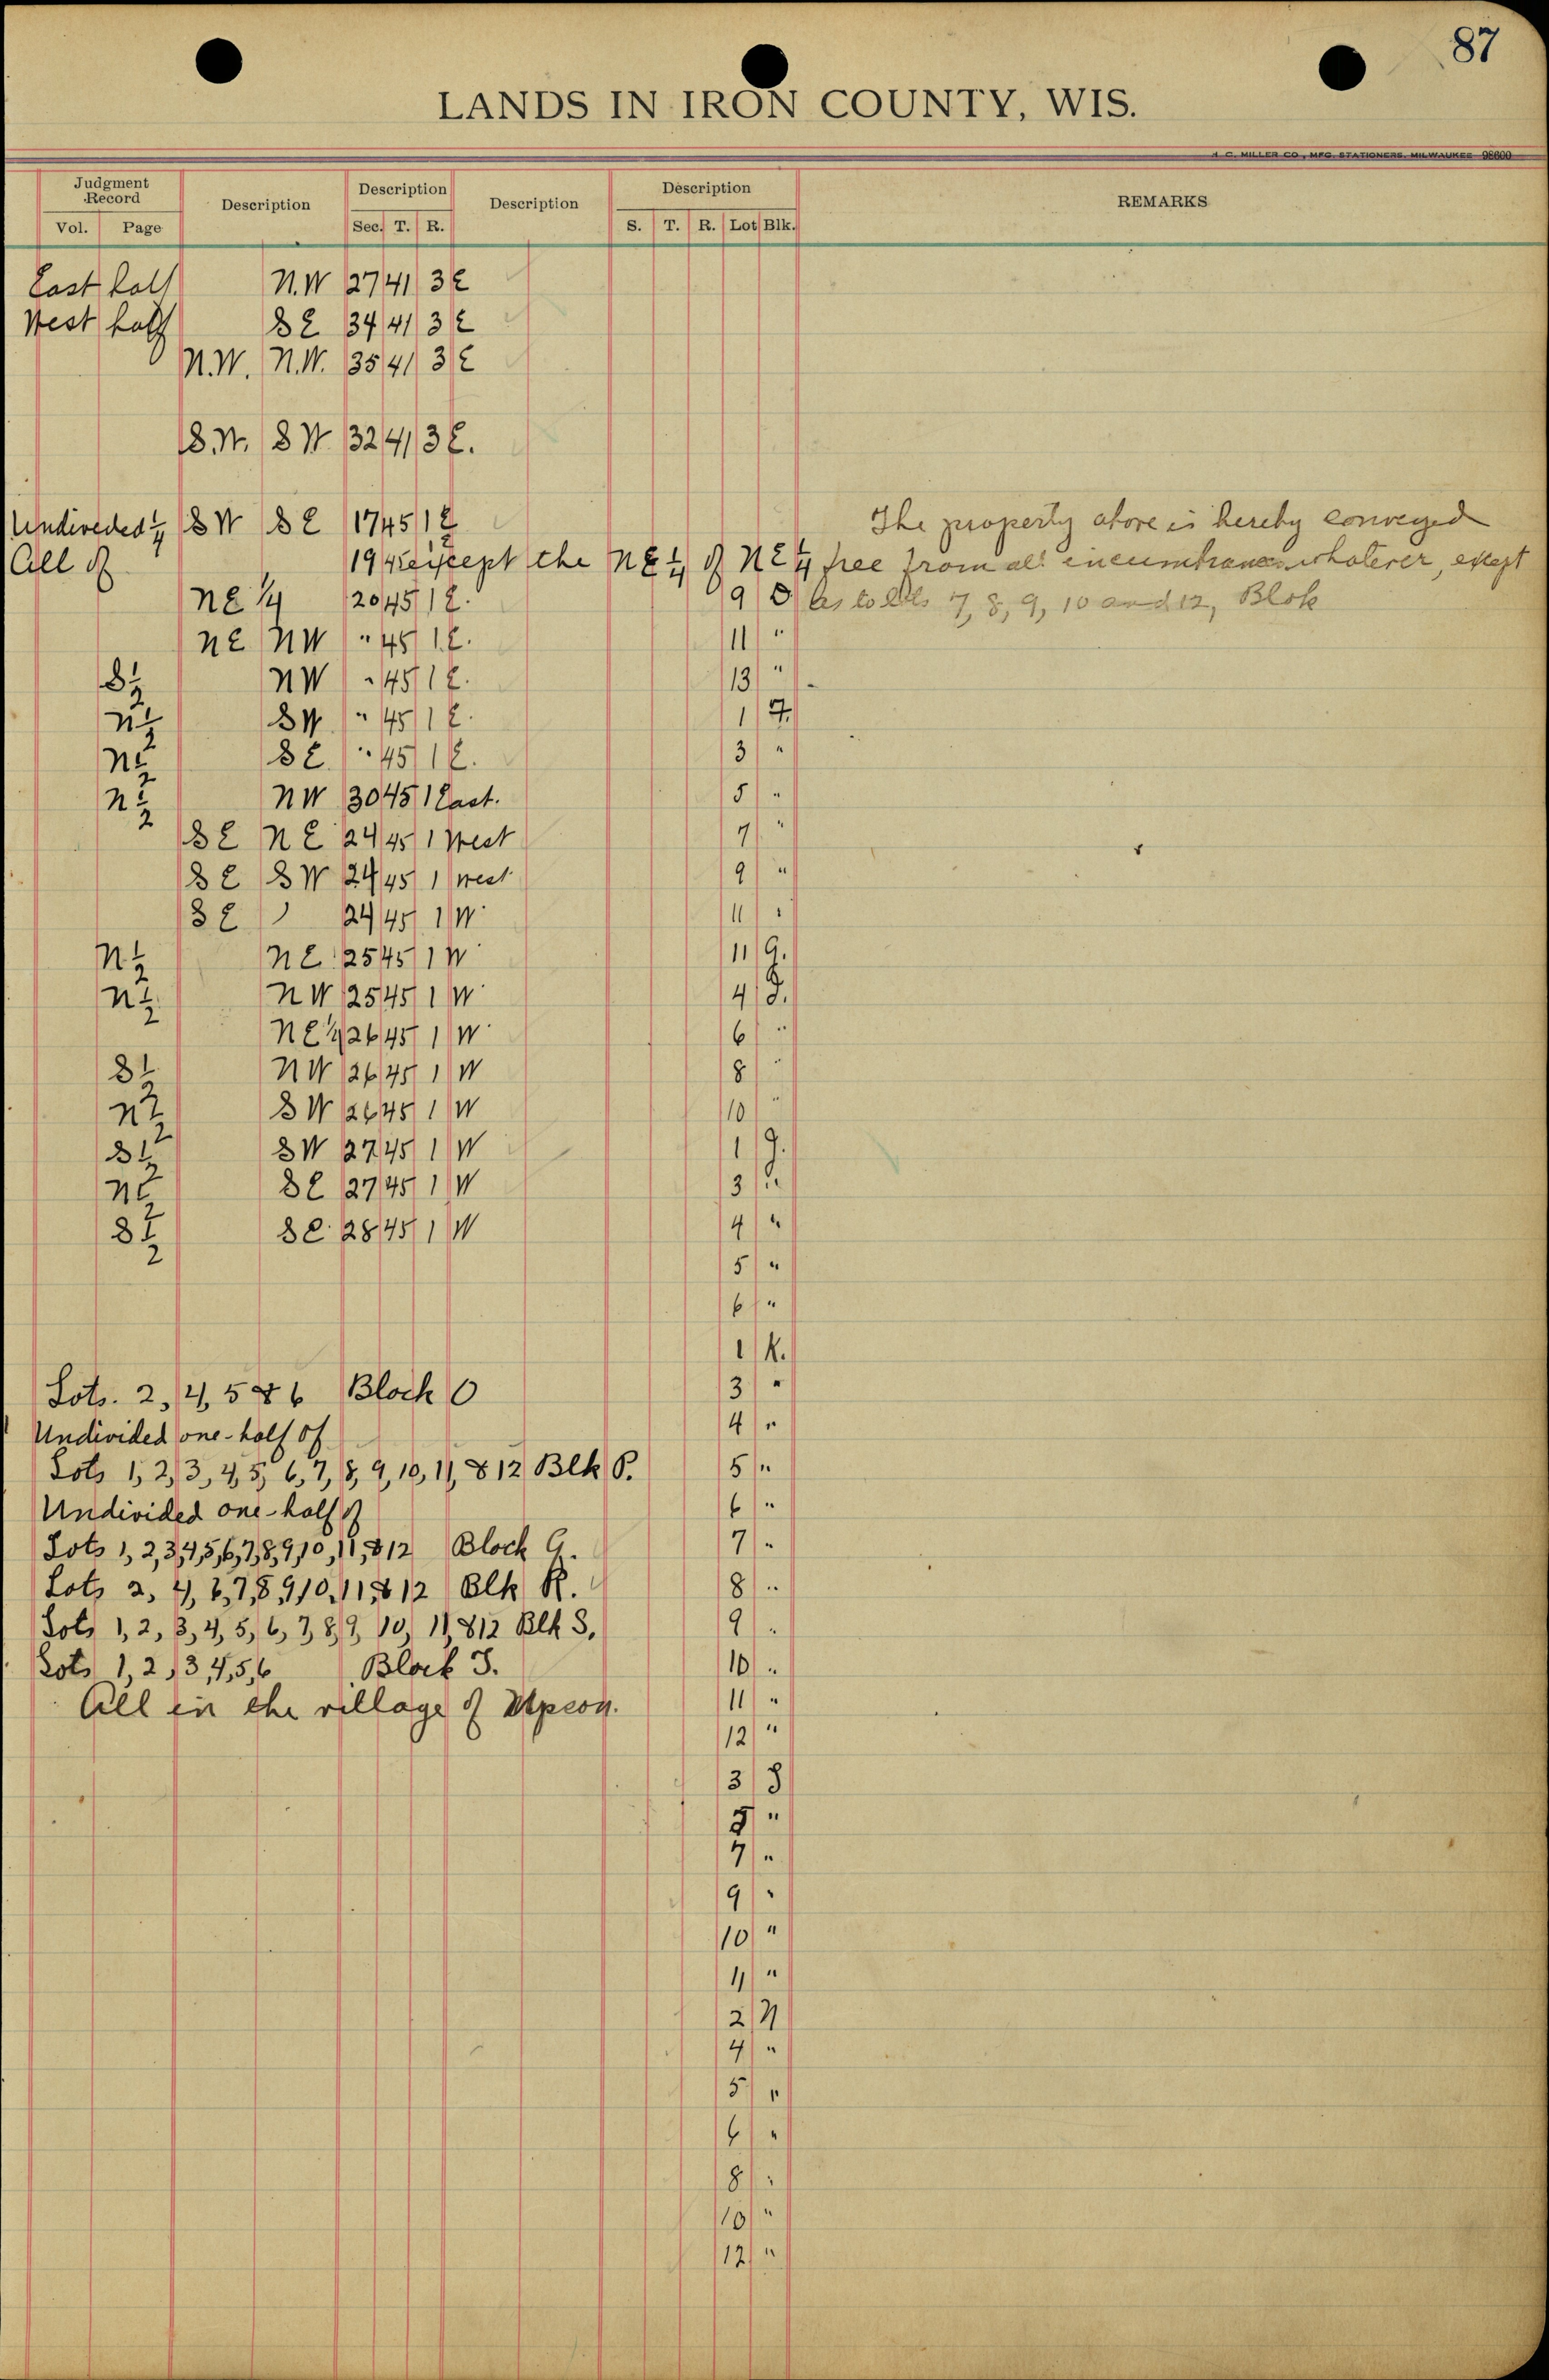 87
LANDS IN IRON COUNTY, WIS.
H. C. MILLER CO., MFG. STATIONERS, MILWAUKEE 98600
Judgment Record Description Description Description Description REMARKS
Vol. Page Sec. T. R. S. T. R. Lot Blk.
East half N.W 27 41 3 E
West half S E 34 41 3 E
N.W. N.W. 35 41 3 E
S.W. S W 32 41 3 E.
Undiveded 1/4 S W S E 17 45 1 E The property above is hereby conveyed
All of 19 45 except the NE 1/4 of NE 1/4 free from all incumbrances whatever, except
NE 1/4 20 45 1 E. 9 D as to lots 7, 8, 9, 10 and 12, Blok
NE NW " 45 1 E. 11 "
S 1/2 NW " 45 1 E. 13 "
N 1/2 SW " 45 1 E. 1 F.
N 1/2 S E " 45 1 E. 3 "
N 1/2 NW 30 45 1 East. 5 "
S E N E 24 45 1 West 7 "
S E S W 24 45 1 West 9 "
S E 24 45 1 W 11 "
N 1/2 N E 25 45 1 W 11 G.
N 1/2 N W 25 45 1 W 4
N E 1/4 26 45 1 W 6 "
S 1/2 N W 26 45 1 W 8 "
N 1/2 S W 26 45 1 W 10 "
S 1/2 S W 27 45 1 W 1
N 1/2 S E 27 45 1 W 3 "
S 1/2 S E 28 45 1 W 4 "
5 "
6 "
1 K.
Lots. 2, 4, 5 & 6 Block O 3 "
Undivided one-half of 4 "
Lots 1, 2, 3, 4, 5, 6, 7, 8, 9, 10, 11, & 12 Blk P. 5 "
Undivided one-half of 6 "
Lots 1, 2, 3, 4, 5, 6, 7, 8, 9, 10, 11, & 12 Block Q. 7 "
Lots 2, 4, 6, 7, 8, 9, 10, 11, & 12 Blk R. 8 "
Lots 1, 2, 3, 4, 5, 6, 7, 8, 9, 10, 11, & 12 Blk S. 9 "
Lots 1, 2, 3, 4, 5, 6 Block T. 10 "
All in the village of Upson. 11 "
12 "
3
5 "
7 "
9 "
10 "
11 "
2 N
4 "
5 "
6 "
8 "
10 "
12 "